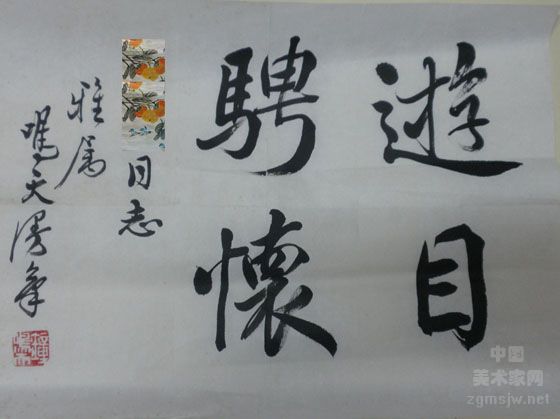 遊目
騁懷
同志
雅属
天
中国
美术家网
zgmsjw.net